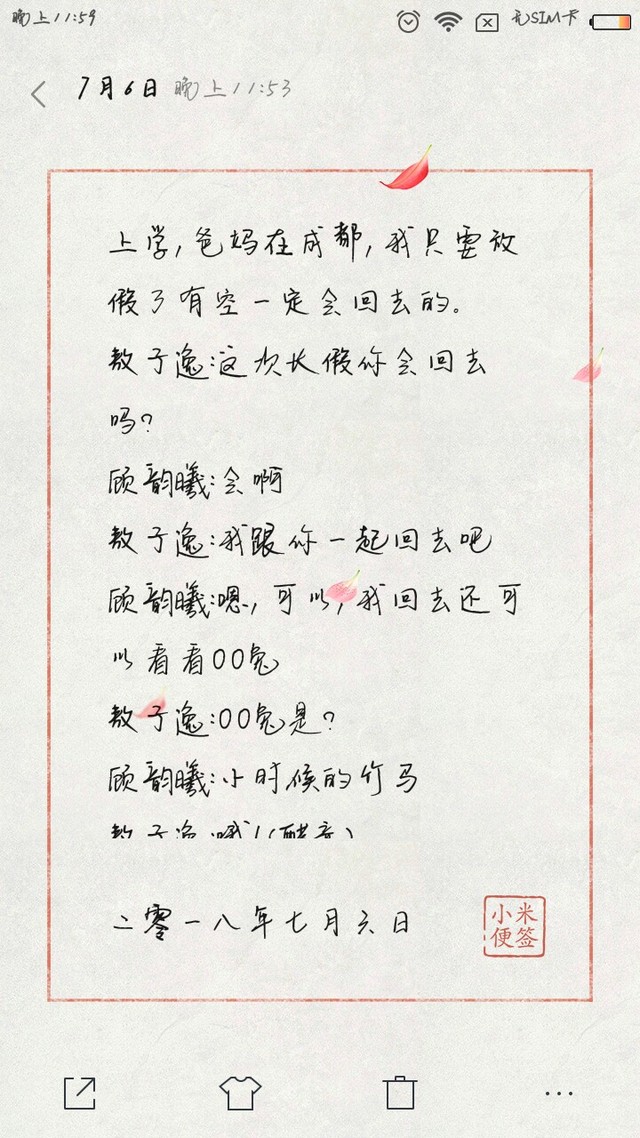 晚上11:59
无SIM卡
7月6日 晚上11:53
上学,爸妈在成都,我只要放
假了有空一定会回去的。
敖子逸:这次长假你会回去
吗?
顾韵曦:会啊
敖子逸:我跟你一起回去吧
顾韵曦:嗯,可以,我回去还可
以看看00兔
敖子逸:00兔是?
顾韵曦:小时候的竹马
敖子逸:哦!(醋意)
二零一八年七月六日
小米
便签